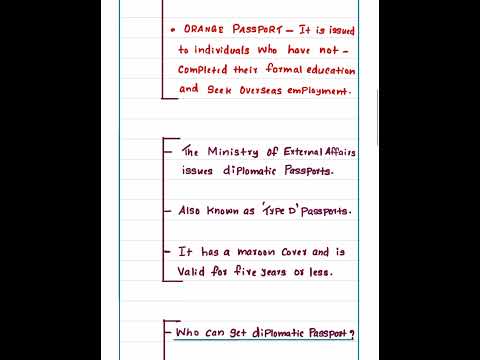 • ORANGE PASSPORT – It is issued
to individuals who have not –
completed their formal education
and seek overseas employment.
– The Ministry of External Affairs
issues diplomatic Passports.
– Also known as 'Type D' Passports.
– It has a maroon cover and is
valid for five years or less.
– Who can get diplomatic Passport?